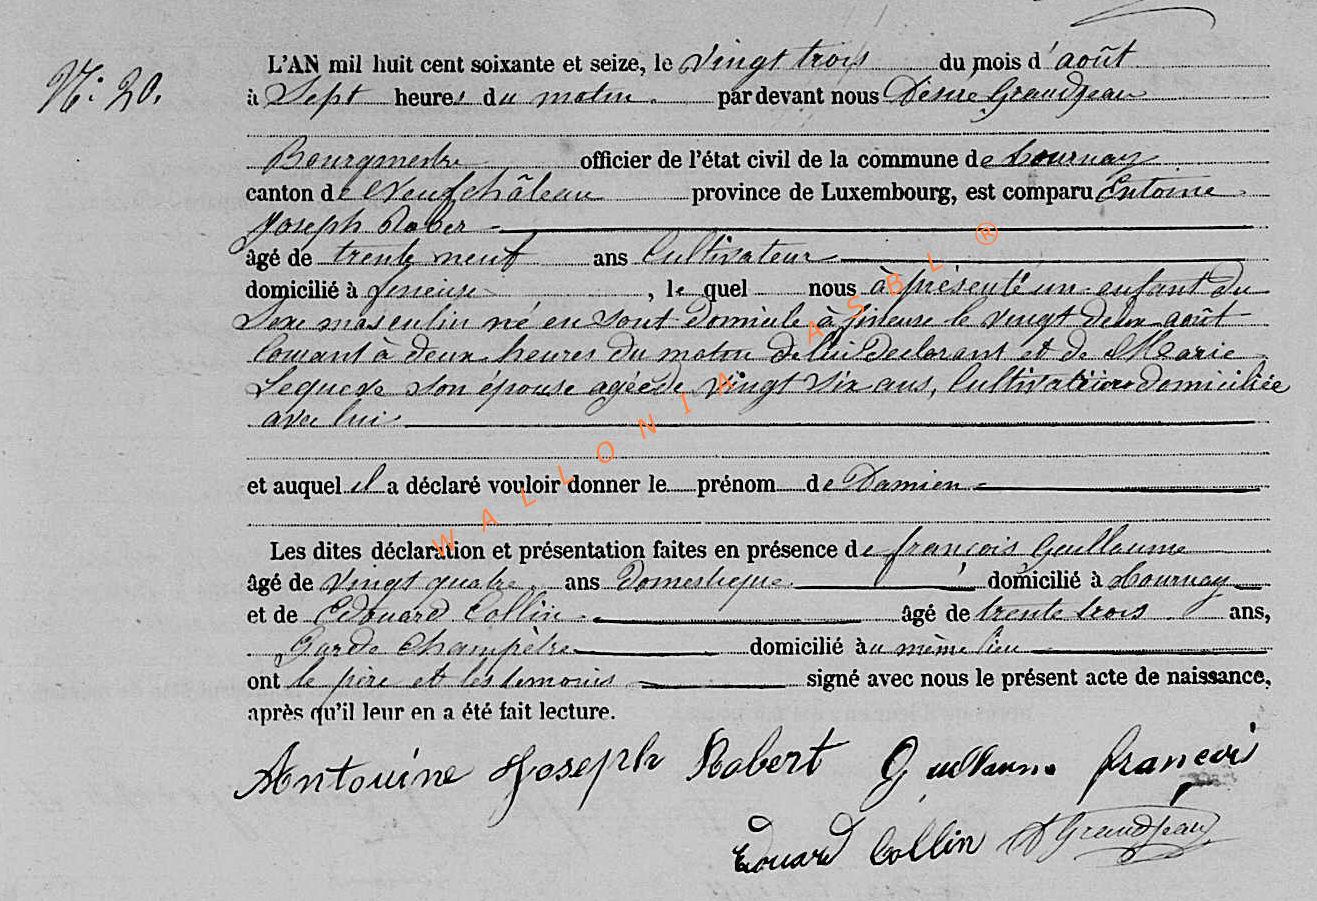 N: 20.
L'AN mil huit cent soixante et seize, le vingt trois du mois d'août
à Sept heures du matin par devant nous Désiré Grandjean
Bourgmestre officier de l'état civil de la commune de tournay
canton de Neufchâteau province de Luxembourg, est comparu Entoine
Joseph Rober
âgé de trente neuf ans Cultivateur
domicilié à fineuse, le quel nous à présenté un enfant du
Sexe masculin né en sont domicile à fineuse le vingt deux août
Courant à deux heures du matin de lui Declarant et de Marie
son épouse agée de vingt six ans, Cultivatrice domiciliée
avec lui
et auquel il a déclaré vouloir donner le prénom de Damien
Les dites déclaration et présentation faites en présence de françois Guillaume
âgé de vingt quatre ans Domestique domicilié à tournay
et de Edouard Collin âgé de trente trois ans,
Garde Champêtre domicilié au même lieu
ont le père et les temoins signé avec nous le présent acte de naissance,
après qu'il leur en a été fait lecture.
Antouine Joseph Robert Guillaume françois
Edouard Collin D Grandjean
WALLONIA ASBL ®